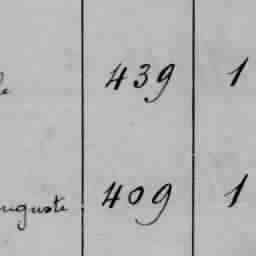 439 1
auguste 409 1